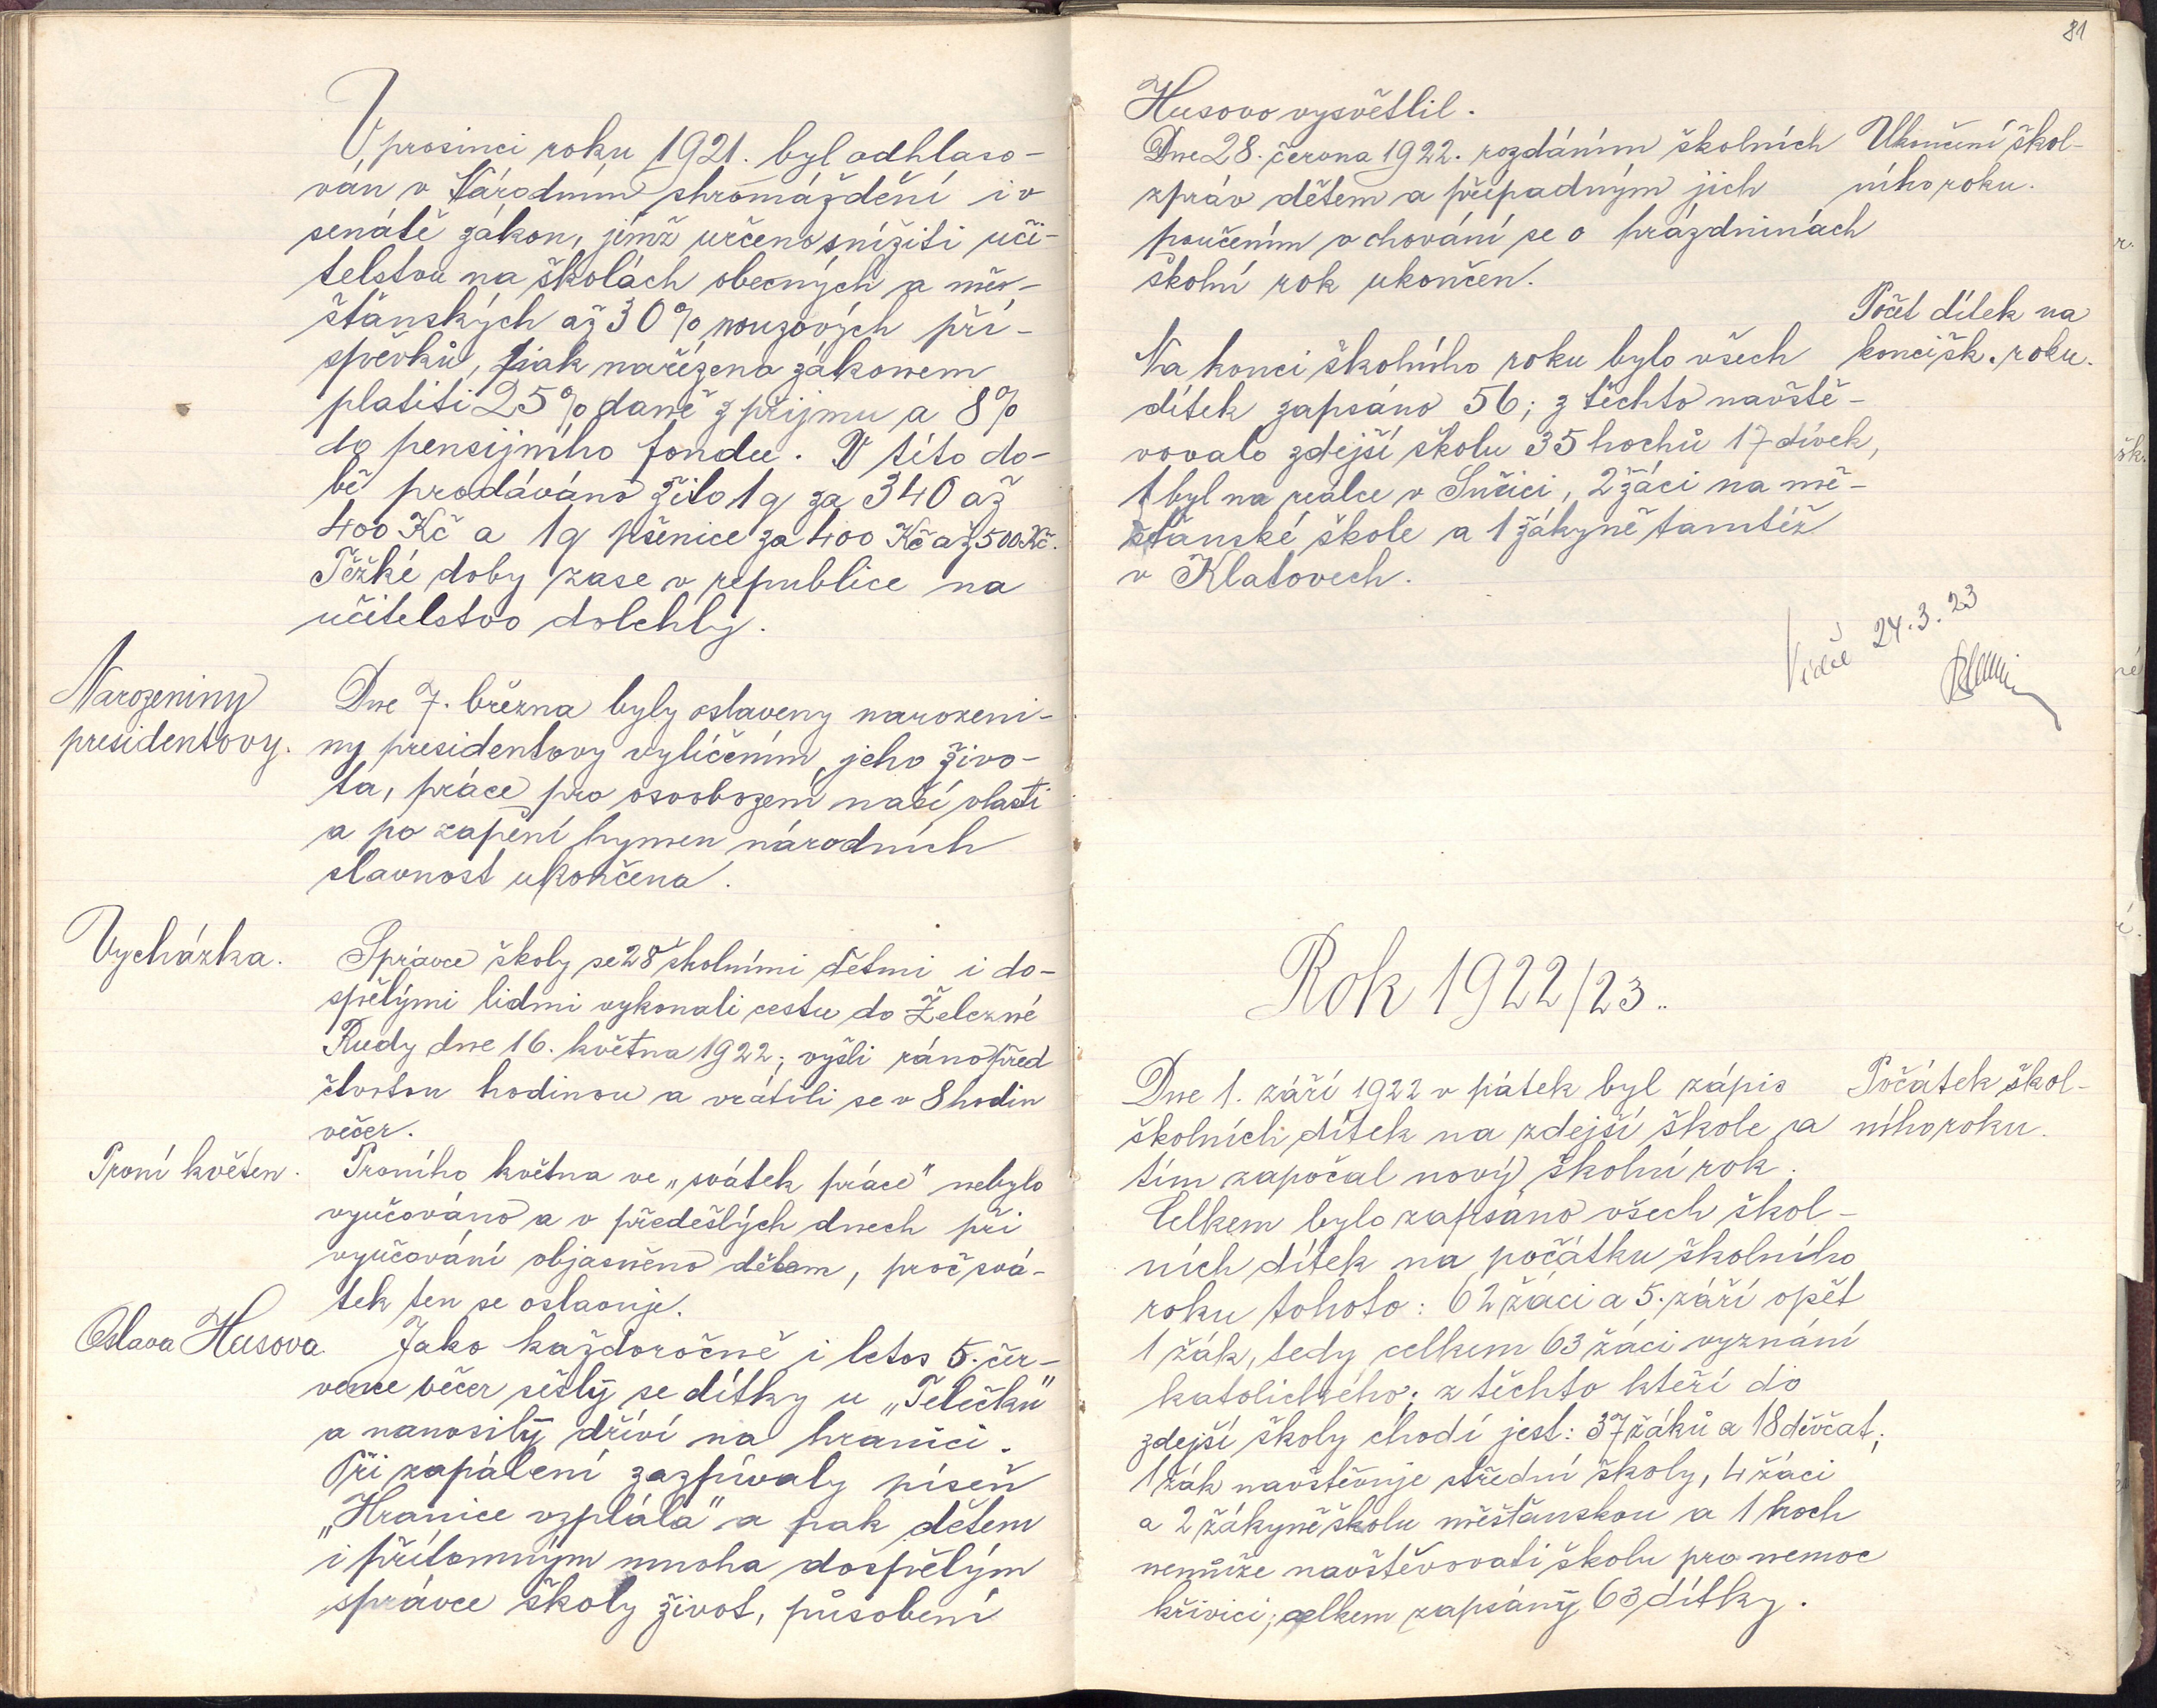 V prosinci roku 1921. byl odhlaso-
ván v Národním shromáždění i v
senátě zákon, jímž určeno snížiti uči-
telstvu na školách obecných a měs-
šťanských až 30% nouzových pří-
spěvků, jinak nařízeno zákonem
platiti 25% daně z příjmu a 8%
do pensijního fondu. V této do-
bě prodáváno žito 1q za 340 až
400 Kč a 1q pšenice za 400 Kč až 500 Kč.
Těžké doby zase v republice na
učitelstvo dolehly.
Narozeniny
presidentovy.
Dne 7. března byly oslaveny narozeni-
ny presidentovy vylíčením jeho živo-
ta, práce pro osvobození naší vlasti
a po zapění hymen národních
slavnost ukončena.
Vycházka.
Správce školy se 28 školními dětmi i do-
spělými lidmi vykonali cestu do Železné
Rudy dne 16. května 1922; vyšli ráno před
čtvrtou hodinou a vrátili se v 8 hodin
večer.
První květen.
Prvního května ve „svátek práce" nebylo
vyučováno a v předešlých dnech při
vyučování objasněno dětem, proč svá-
tek ten se oslavuje.
Oslava Husova.
Jako každoročně i letos 5. čer-
vence večer sešly se dítky u „Telečků"
a nanosily dříví na hranici.
Při zapálení zazpívaly píseň
„Hranice vzplála" a pak dětem
i přítomným mnoha dospělým
správce školy život, působení
81
Husovo vysvětlil.
Dne 28. června 1922. rozdáním školních
zpráv dětem a případným jich
poučením o chování se o prázdninách
školní rok ukončen.
Ukončení škol-
ního roku.
Na konci školního roku bylo všech
dítek zapsáno 56; z těchto navště-
vovalo zdejší školu 35 hochů 17 dívek,
1 byl na reálce v Sušici, 2 žáci na mě-
šťanské škole a 1 žákyně tamtéž
v Klatovech.
Počet dítek na
konci šk. roku.
Viděl 24.3.23
Rok 1922/23.
Dne 1. září 1922 v pátek byl zápis
školních dítek na zdejší škole a
tím započal nový školní rok.
Počátek škol-
ního roku.
Celkem bylo zapsáno všech škol-
ních dítek na počátku školního
roku tohoto: 62 žáci a 5. září opět
1 žák, tedy celkem 63 žáci vyznání
katolického; z těchto kteří do
zdejší školy chodí jest: 37 žáků a 18 děvčat;
1 žák navštěvuje střední školy, 4 žáci
a 2 žákyně školu měšťanskou a 1 hoch
nemůže navštěvovati školu pro nemoc
křivici; celkem zapsány 63 dítky.